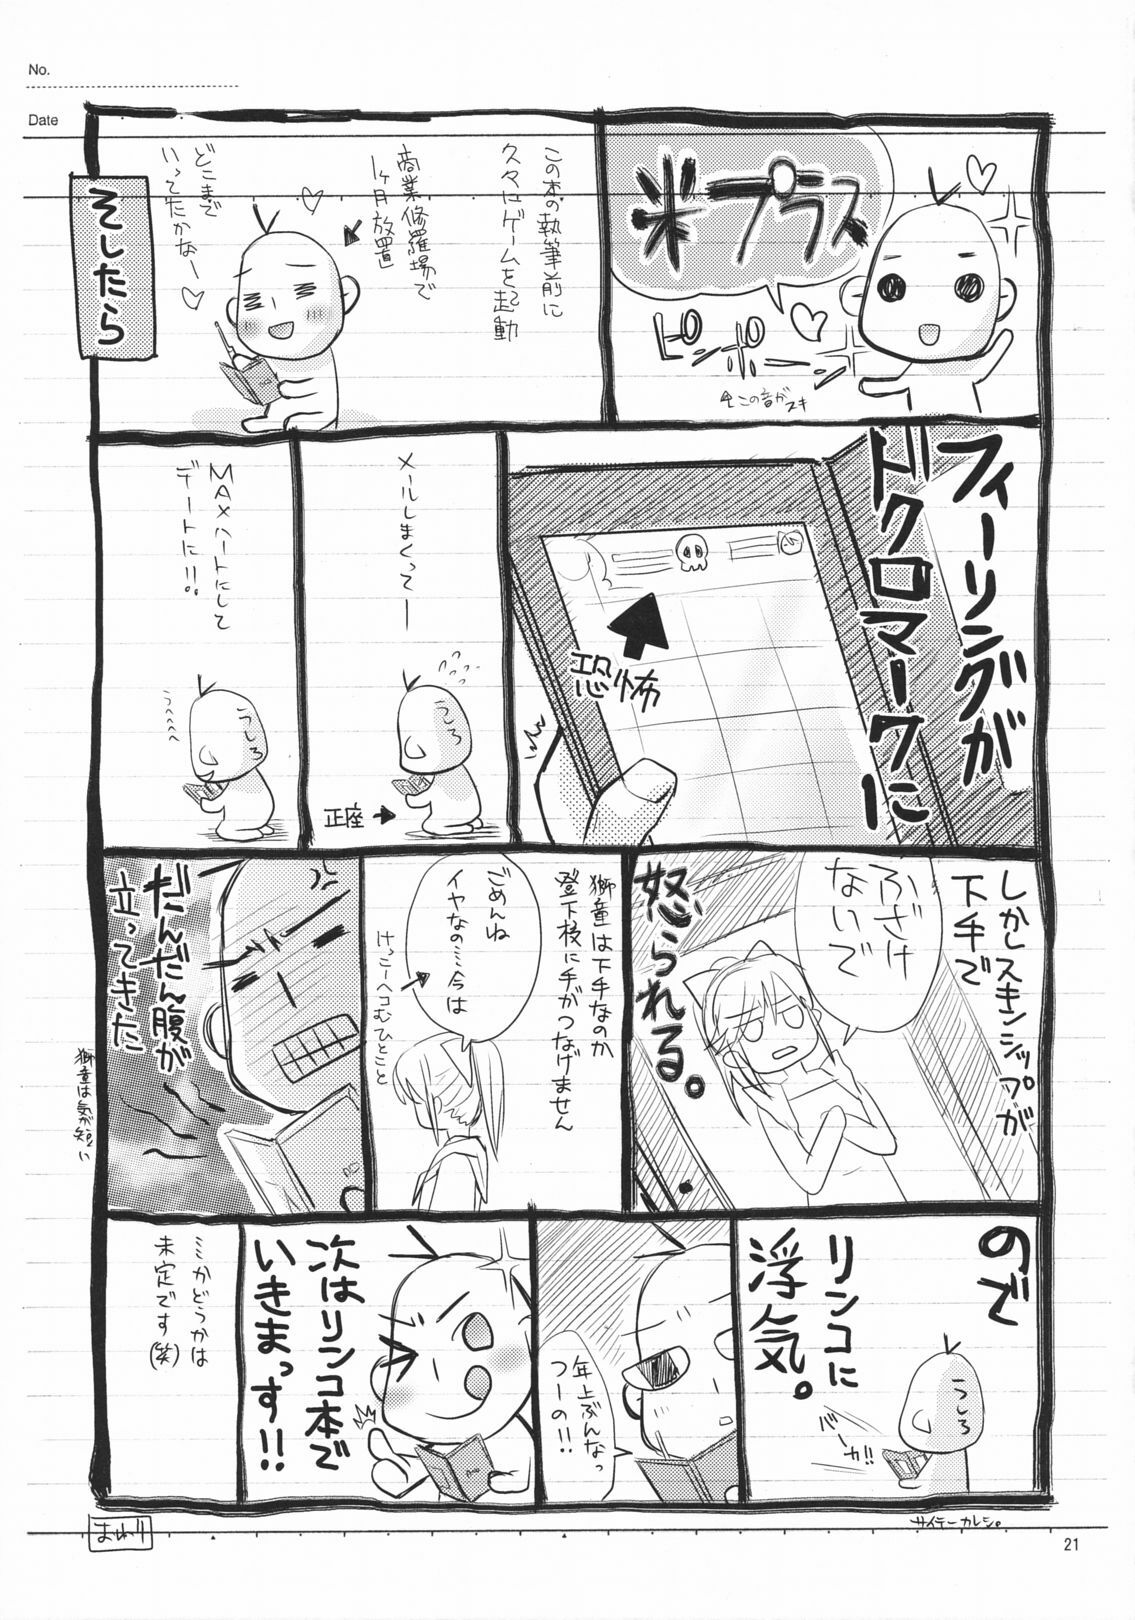 No.
Date
※プラス
ピンポーン
この音がスキ
この本の執筆前に
久々にゲームを起動
商業修羅場で
1ヶ月放置
どこまで
いってたかなー
そしたら
フィーリングが
ドクロマークに
恐怖
メールしまくってー
うしろ
正座
MAXハートにして
デートに!!
うしろ
うへへへへ
しかしスキンシップが
下手で
ふざけ
ないで
怒られる。
獅童は下手なのか
登下校に手がつなげません
ごめんね
イヤなの…今は
けっこーヘコむひとこと
だんだん腹が
立ってきた
獅童は気が短い
ので
リンコに
浮気。
うしろ
バーカ!!
サイテーカレシ。
年上ぶんなっ
つーの!!
次はリンコ本で
いきまっす!!
ミかどうかは
未定です(笑)
おわり
21